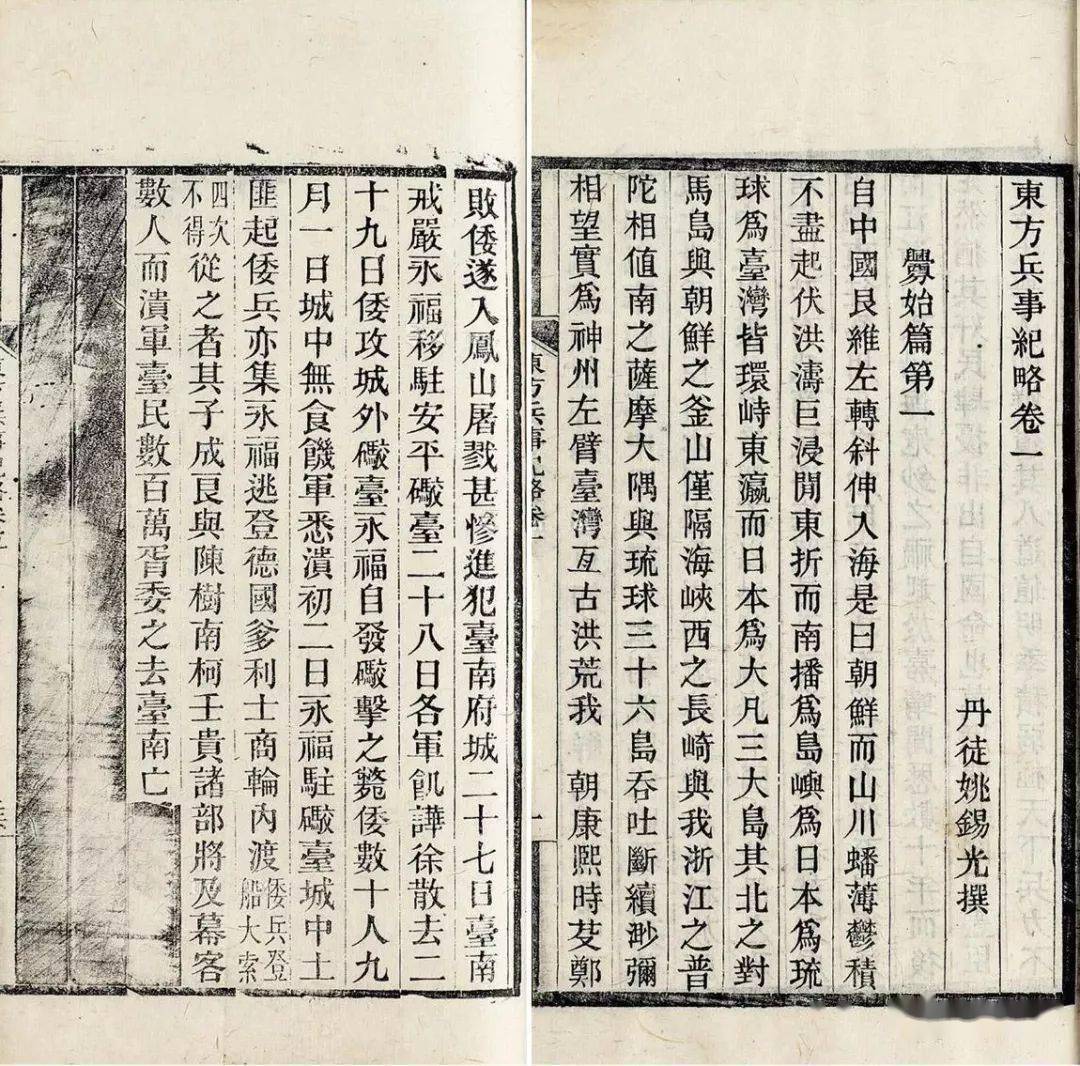 東方兵事紀略卷一
丹徒姚錫光撰
釁始篇第一
自中國艮維左轉斜伸入海是曰朝鮮而山川蟠薄鬱積
不盡起伏洪濤巨浸閒東折而南播爲島嶼爲日本爲琉
球爲臺灣皆環峙東瀛而日本爲大凡三大島其北之對
馬島與朝鮮之釜山僅隔海峽西之長崎與我浙江之普
陀相值南之薩摩大隅與琉球三十六島吞吐斷續渺彌
相望實爲神州左臂臺灣亙古洪荒我 朝康熙時芟鄭
敗倭遂入鳳山屠戮甚慘進犯臺南府城二十七日臺南
戒嚴永福移駐安平礮臺二十八日各軍飢譁徐散去二
十九日倭攻城外礮臺永福自發礮擊之斃倭數十人九
月一日城中無食饑軍悉潰初二日永福駐礮臺城中土
匪起倭兵亦集永福逃登德國爹利士商輪內渡倭兵登船大索
四次不得從之者其子成艮與陳樹南柯壬貴諸部將及幕客
數人而潰軍臺民數百萬胥委之去臺南亡
東方兵事紀略卷一